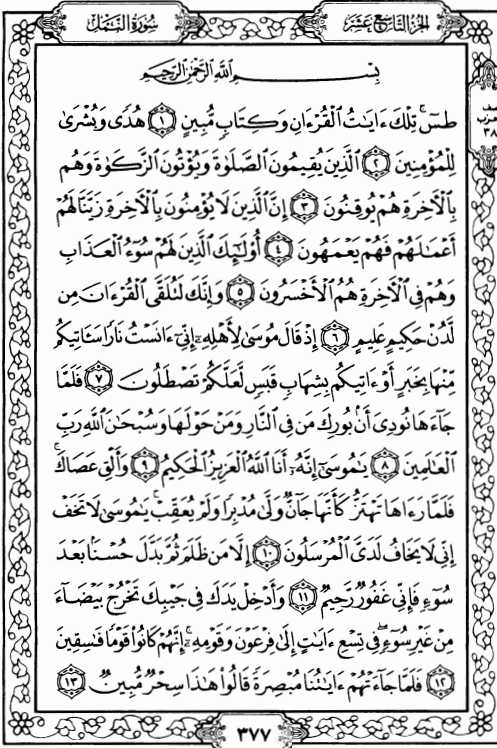 الجزء التاسع عشر
سورة النمل
بِسْمِ اللَّهِ الرَّحْمَٰنِ الرَّحِيمِ
طسٓ ۚ تِلْكَ ءَايَٰتُ الْقُرْءَانِ وَكِتَابٍ مُّبِينٍ ١ هُدًى وَبُشْرَىٰ
لِلْمُؤْمِنِينَ ٢ الَّذِينَ يُقِيمُونَ الصَّلَوٰةَ وَيُؤْتُونَ الزَّكَوٰةَ وَهُم
بِالْءَاخِرَةِ هُمْ يُوقِنُونَ ٣ إِنَّ الَّذِينَ لَا يُؤْمِنُونَ بِالْءَاخِرَةِ زَيَّنَّا لَهُمْ
أَعْمَٰلَهُمْ فَهُمْ يَعْمَهُونَ ٤ أُو۟لَٰٓئِكَ الَّذِينَ لَهُمْ سُوٓءُ الْعَذَابِ
وَهُمْ فِى الْءَاخِرَةِ هُمُ الْأَخْسَرُونَ ٥ وَإِنَّكَ لَتُلَقَّى الْقُرْءَانَ مِن
لَّدُنْ حَكِيمٍ عَلِيمٍ ٦ إِذْ قَالَ مُوسَىٰ لِأَهْلِهِۦٓ إِنِّىٓ ءَانَسْتُ نَارًا سَـَٔاتِيكُم
مِّنْهَا بِخَبَرٍ أَوْ ءَاتِيكُم بِشِهَابٍ قَبَسٍ لَّعَلَّكُمْ تَصْطَلُونَ ٧ فَلَمَّا
جَآءَهَا نُودِىَ أَنۢ بُورِكَ مَن فِى النَّارِ وَمَنْ حَوْلَهَا وَسُبْحَٰنَ اللَّهِ رَبِّ
الْعَٰلَمِينَ ٨ يَٰمُوسَىٰٓ إِنَّهُۥٓ أَنَا اللَّهُ الْعَزِيزُ الْحَكِيمُ ٩ وَأَلْقِ عَصَاكَ ۚ
فَلَمَّا رَءَاهَا تَهْتَزُّ كَأَنَّهَا جَآنٌّ وَلَّىٰ مُدْبِرًا وَلَمْ يُعَقِّبْ ۚ يَٰمُوسَىٰ لَا تَخَفْ
إِنِّى لَا يَخَافُ لَدَىَّ الْمُرْسَلُونَ ١٠ إِلَّا مَن ظَلَمَ ثُمَّ بَدَّلَ حُسْنًۢا بَعْدَ
سُوٓءٍ فَإِنِّى غَفُورٌ رَّحِيمٌ ١١ وَأَدْخِلْ يَدَكَ فِى جَيْبِكَ تَخْرُجْ بَيْضَآءَ
مِنْ غَيْرِ سُوٓءٍ ۖ فِى تِسْعِ ءَايَٰتٍ إِلَىٰ فِرْعَوْنَ وَقَوْمِهِۦٓ ۚ إِنَّهُمْ كَانُوا۟ قَوْمًا فَٰسِقِينَ
١٢ فَلَمَّا جَآءَتْهُمْ ءَايَٰتُنَا مُبْصِرَةً قَالُوا۟ هَٰذَا سِحْرٌ مُّبِينٌ ١٣
٣٧٧